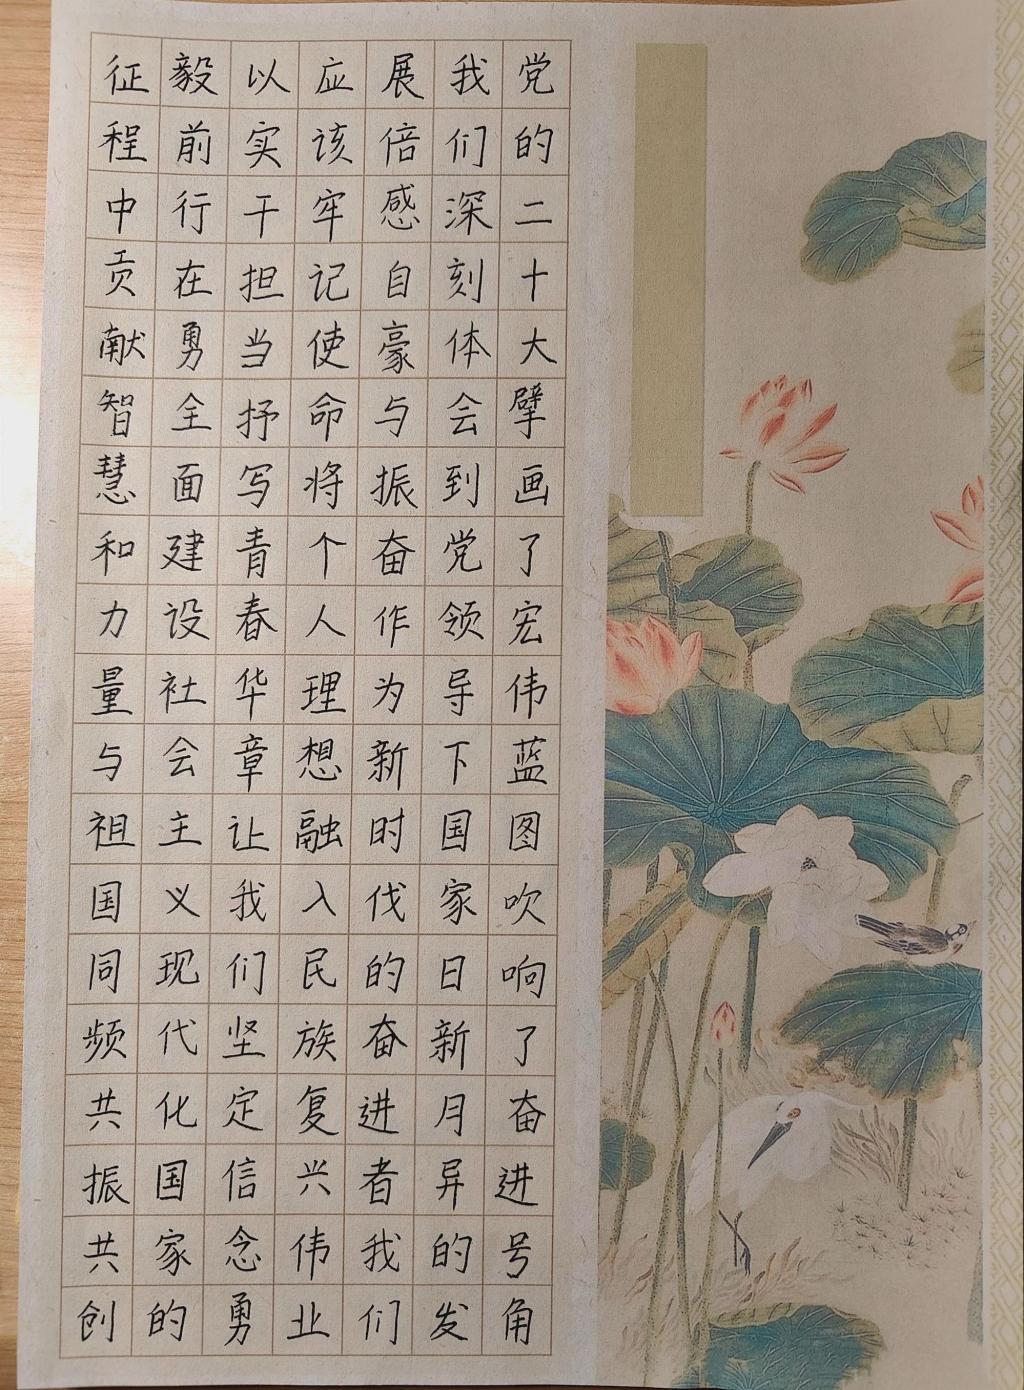 党的二十大擘画了宏伟蓝图吹响了奋进号角
我们深刻体会到党领导下国家日新月异的发
展倍感自豪与振奋作为新时伐的奋进者我们
应该牢记使命将个人理想融入民族复兴伟业
以实干担当抒写青春华章让我们坚定信念勇
毅前行在勇全面建设社会主义现代化国家的
征程中贡献智慧和力量与祖国同频共振共创